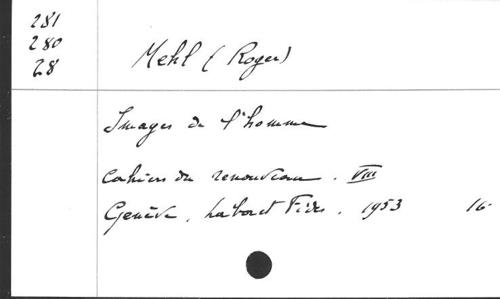 281
280
28
Mehl (Roger)
Images de l'homme
Cahiers du renouveau. VIII
Genève, Labor et Fides. 1953 16-